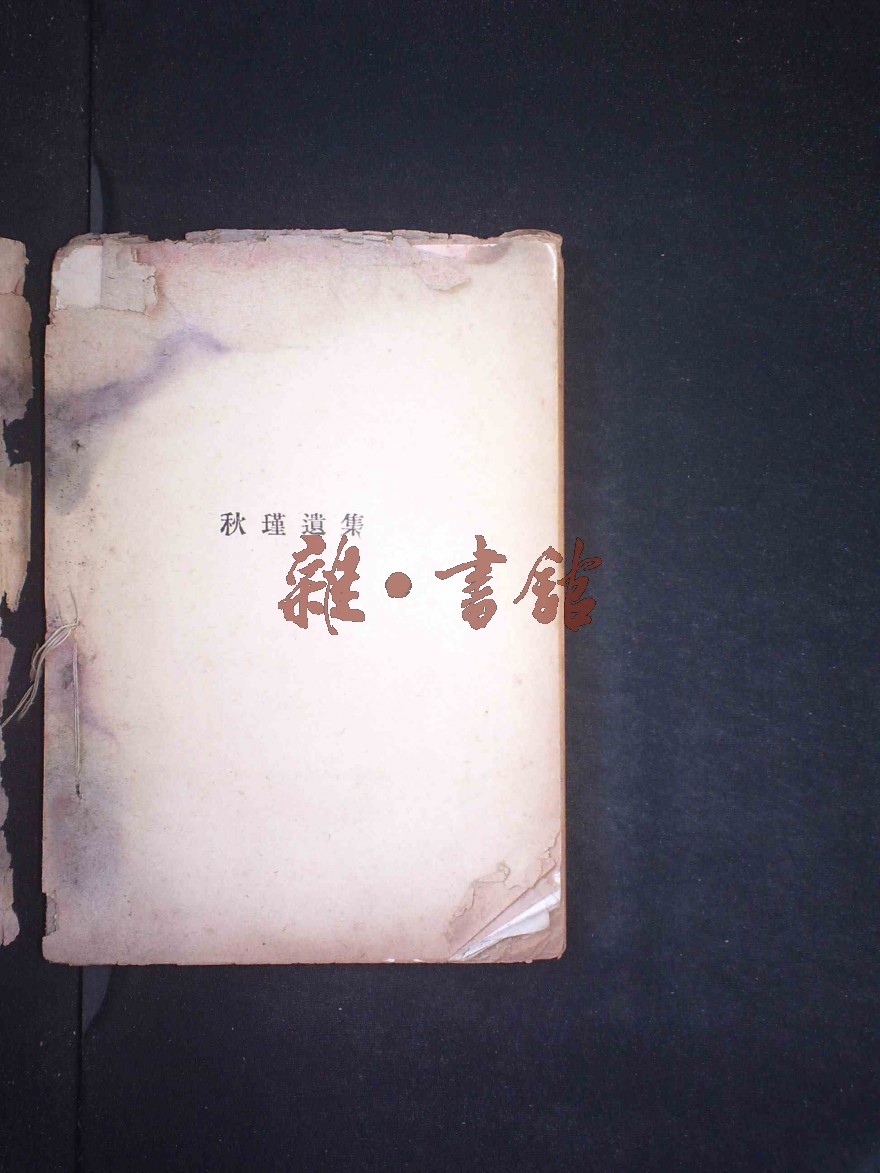 秋瑾遺集
雜·書舘